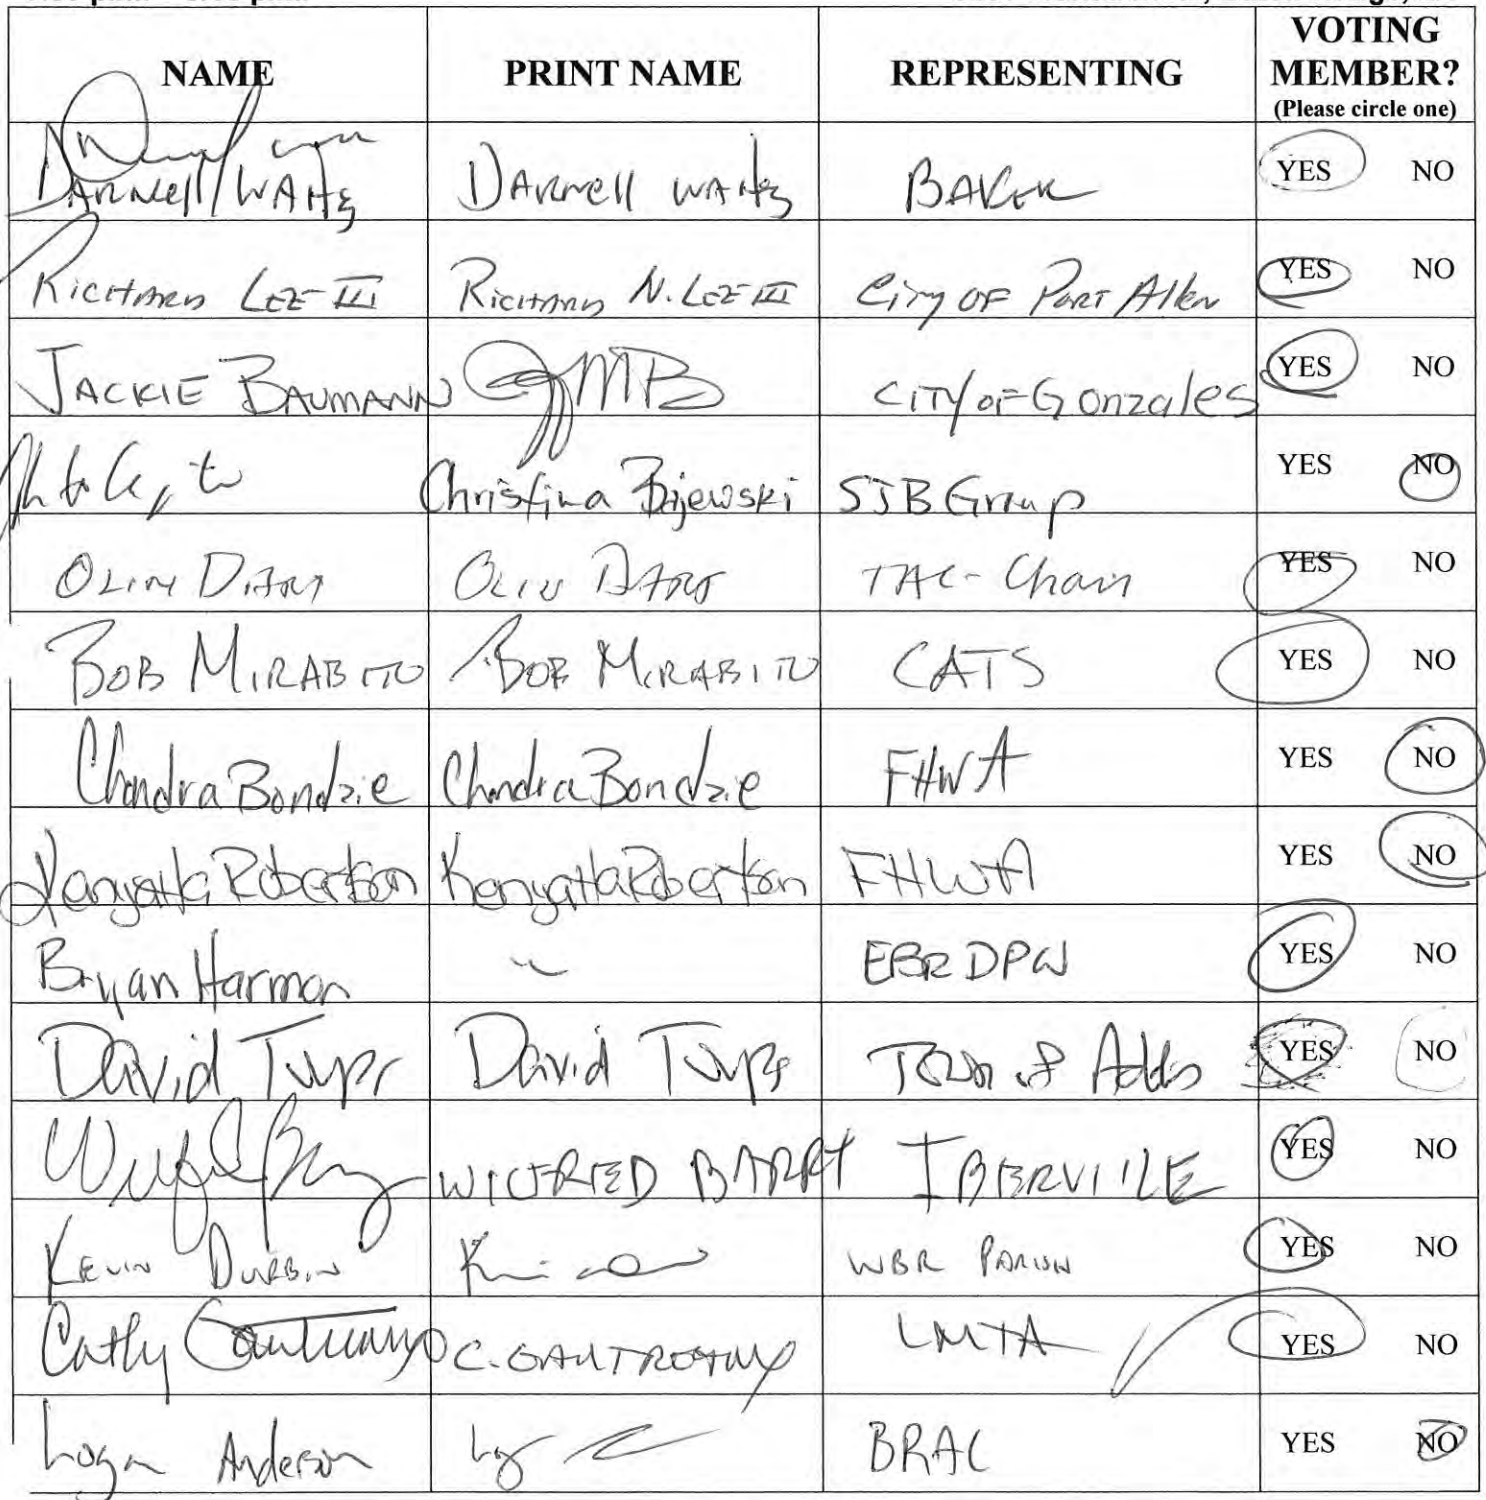 NAME PRINT NAME REPRESENTING VOTING MEMBER?
(Please circle one)
DARNell WAItes DARNell WAItes BAKER YES NO
RICHARD LEE III RICHARD N. LEE III City OF PORT Allen YES NO
JACKIE BAUMANN JMB CITY OF Gonzales YES NO
Christina Bijewski SJB Group YES NO
OLIN DIART OLIN DIART TAC-Chair YES NO
BOB MIRABITO BOB MIRABITO CATS YES NO
Chandra Bondzie Chandra Bondzie FHWA YES NO
Kenyatta Robertson Kenyatta Robertson FHWA YES NO
Bryan Harmon EBR DPW YES NO
David Toups David Toups Town of Addis YES NO
WILFRED BARRY IBERVILLE YES NO
KEVIN DURBIN WBR PARISH YES NO
Cathy Gautreaux C. GAUTREAUX LMTA YES NO
Logan Anderson BRAC YES NO